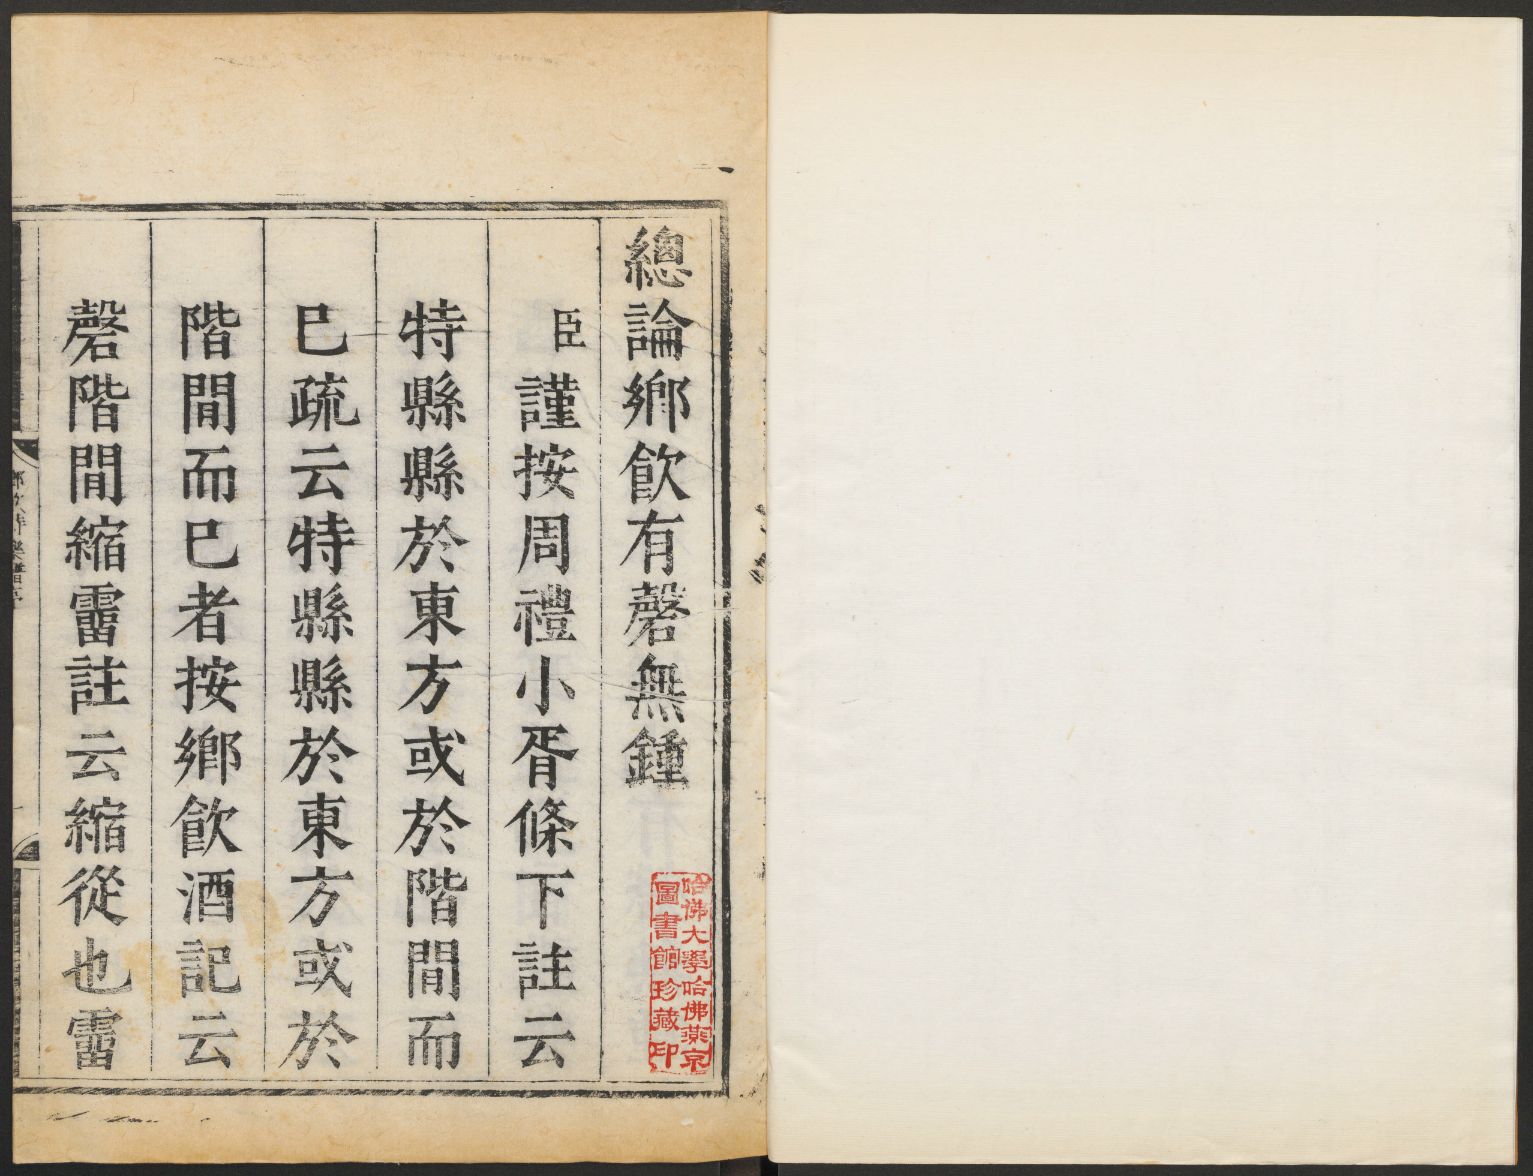 總論鄉飲有磬無鍾
臣謹按周禮小胥條下註云
特縣縣於東方或於階間而
巳疏云特縣縣於東方或於
階間而巳者按鄉飲酒記云
磬階間縮霤註云縮從也霤
哈佛大學哈佛燕京
圖書館珍藏印